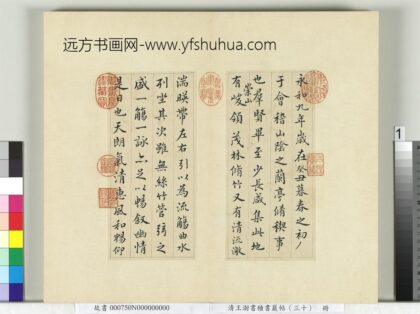 远方书画网-www.yfshuhua.com
永和九年歲在癸丑暮春之初
于會稽山陰之蘭亭脩禊事
也羣賢畢至少長咸集此地
有崇山峻領茂林脩竹又有清流激
湍暎帶左右引以為流觴曲水
列坐其次雖無絲竹管弦之
盛一觴一詠亦足以暢敘幽情
是日也天朗氣清惠風和暢仰
故書 000750N000000000 清王澍書積書巖帖（三十） 冊